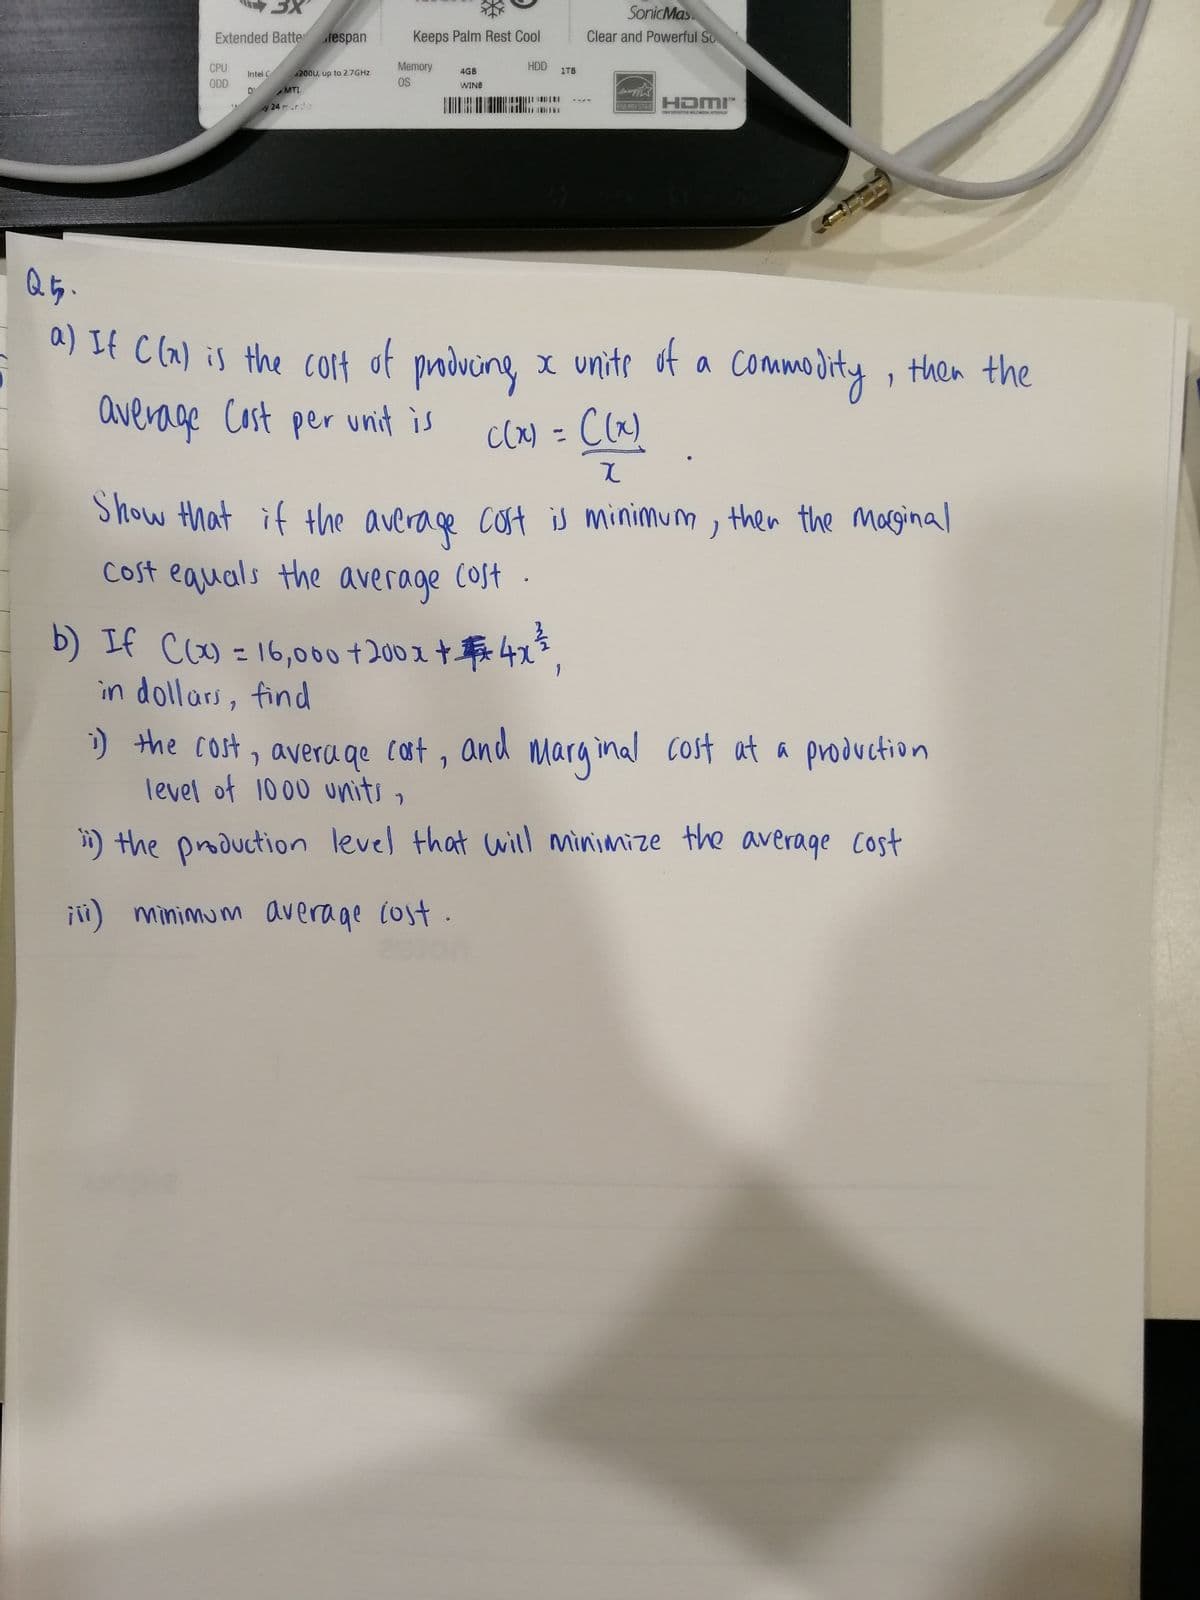 3X
SonicMas
Extended Batte fespan
Keeps Palm Rest Cool
Clear and Powerful So
CPU
Intel C 200U, up to 2.7GHz
Memory
4GB
HDD
1TB
ODD
MTL
OS
WIN8
24
ENERGY STAR
HDMI™
Q5.
a) If C(x) is the cost of producing x units of a commodity, then the
average cost per unit is c(x) = C(x)
x .
Show that if the average cost is minimum, then the marginal
cost equals the average cost.
b) If C(x) = 16,000 + 200x + 4x^3/2,
in dollars, find
i) the cost, average cost, and marginal cost at a production
level of 1000 units,
ii) the production level that will minimize the average cost
iii) minimum average cost.